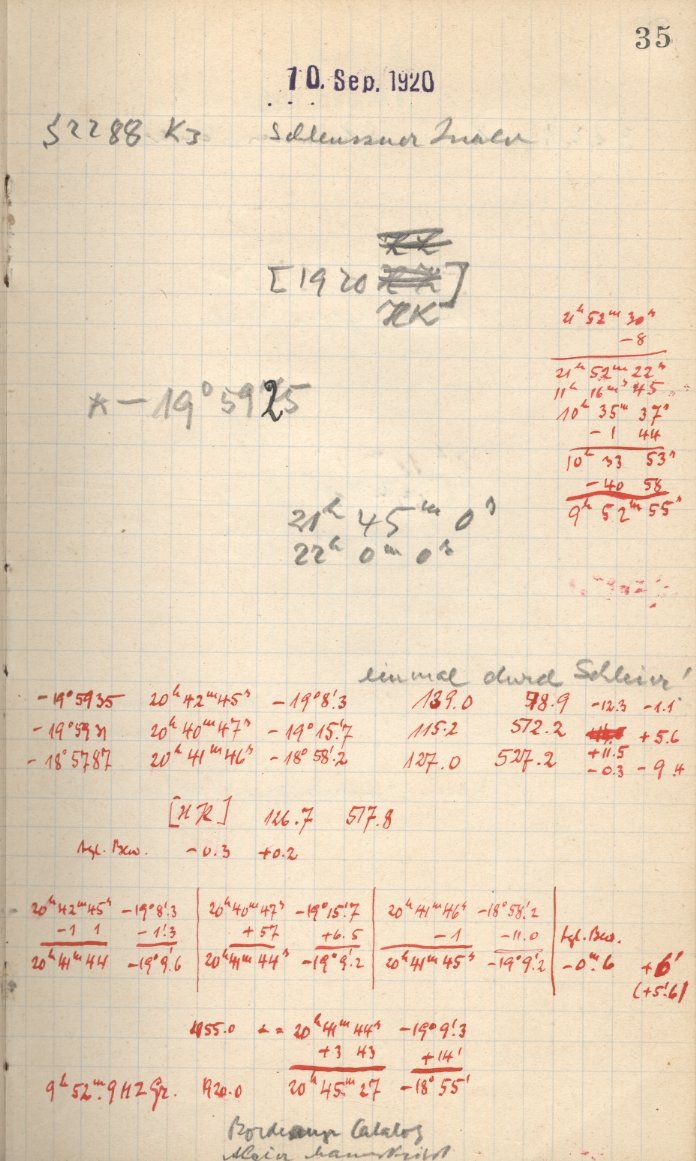 35
10. Sep. 1920
S2288 K3
[1920 HK]
* -19° 5925
21h 52m 30s
-8
21h 52m 22s
11h 16m 45s
10h 35m 37s
-1 44
10h 33 53s
-40 58
9h 52m 55s
21h 45m 0s
22h 0m 0s
einmal durch Schleier!
-19° 5935 20h 42m 45s -19° 8'.3 139.0 98.9 -12.3 -1.1
-19° 5931 20h 40m 47s -19° 15'.7 115.2 512.2 +11.5 +5.6
-18° 5787 20h 41m 46s -18° 58'.2 127.0 527.2 -0.3 -9.4
[HK] 126.7 517.8
tgl. Bew. -0.3 +0.2
20h 42m 45s -19° 8'.3 20h 40m 47s -19° 15'.7 20h 41m 46s -18° 58'.2
-1 1 -1'.3 +57 +6.5 -1 -11.0 tgl. Bew.
20h 41m 44 -19° 9'.6 20h 41m 44s -19° 9'.2 20h 41m 45s -19° 9'.2 -0m.6 +6'
(+5'.6)
1855.0 20h 41m 44s -19° 9'.3
+3 43 +14'
9h 52m.9 MZ Gr. 1920.0 20h 45m 27 -18° 55'
Catalog